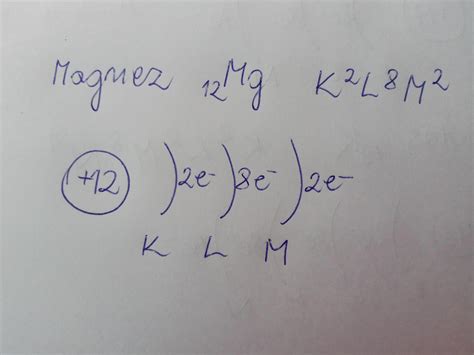 Magnez ₁₂Mg K²L⁸M²
+12 )2e⁻ )8e⁻ )2e⁻
K L M